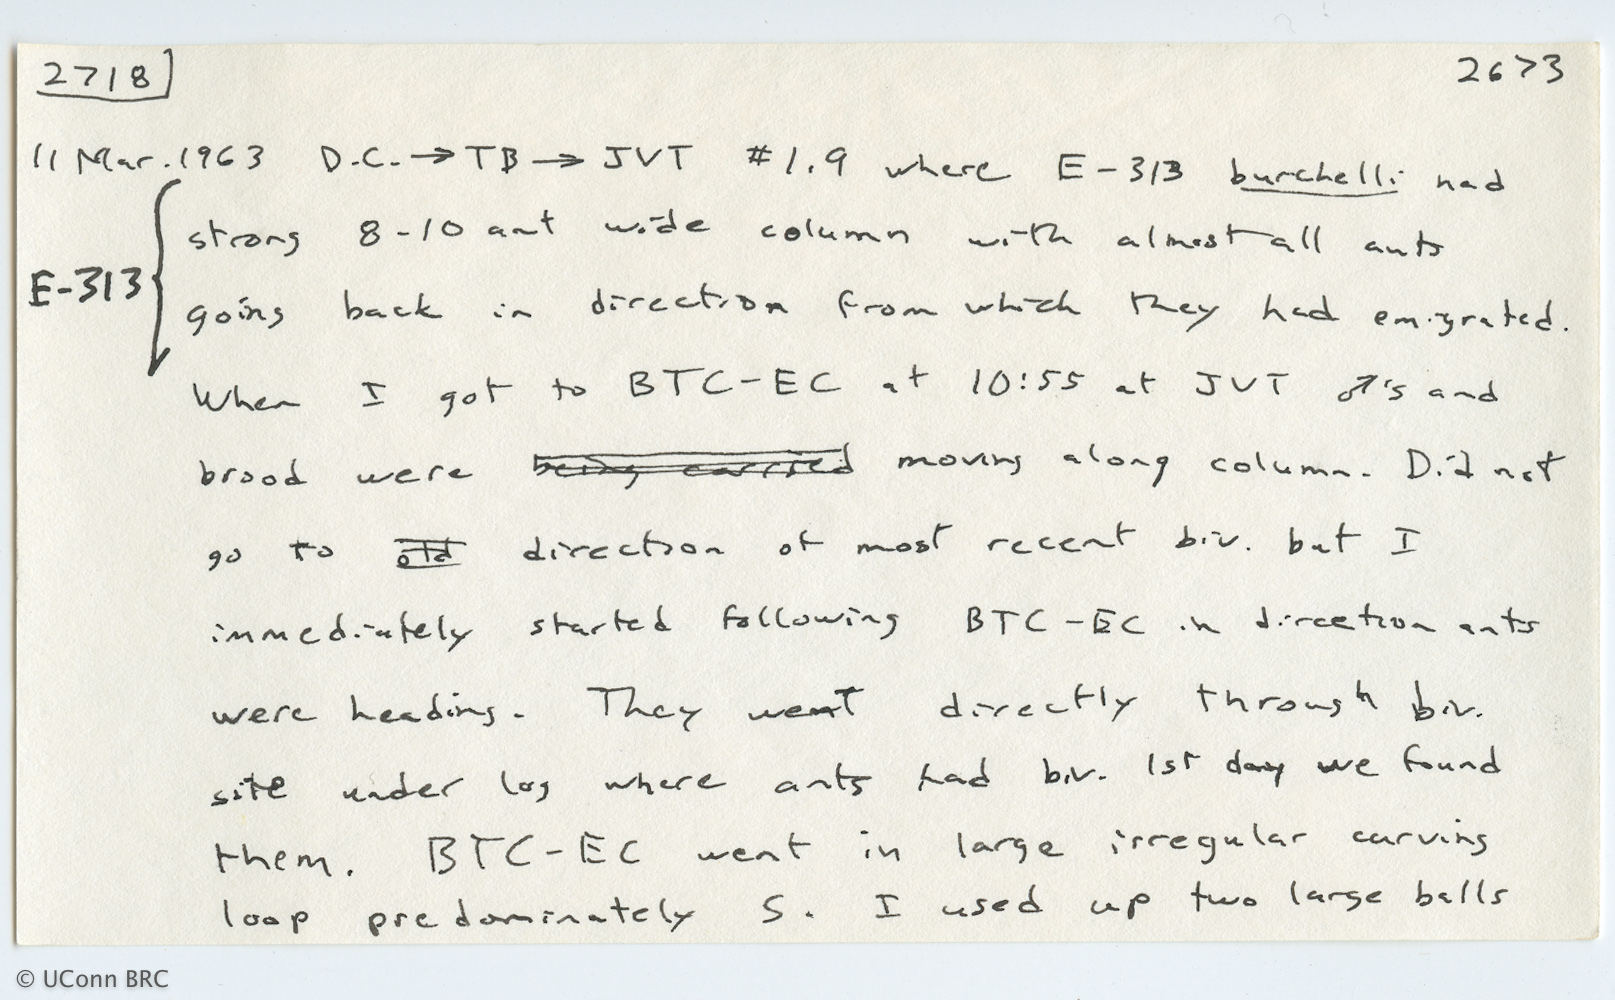 2718
2673
11 Mar. 1963 D.C. → TB → JVT #1.9 where E-313 burchelli had
strong 8-10 ant wide column with almost all ants
E-313
going back in direction from which they had emigrated.
When I got to BTC-EC at 10:55 at JVT ♂'s and
brood were being carried moving along column. Did not
go to old direction of most recent biv. but I
immediately started following BTC-EC in direction ants
were heading. They went directly through biv.
site under log where ants had biv. 1st day we found
them. BTC-EC went in large irregular curving
loop predominately S. I used up two large balls
© UConn BRC